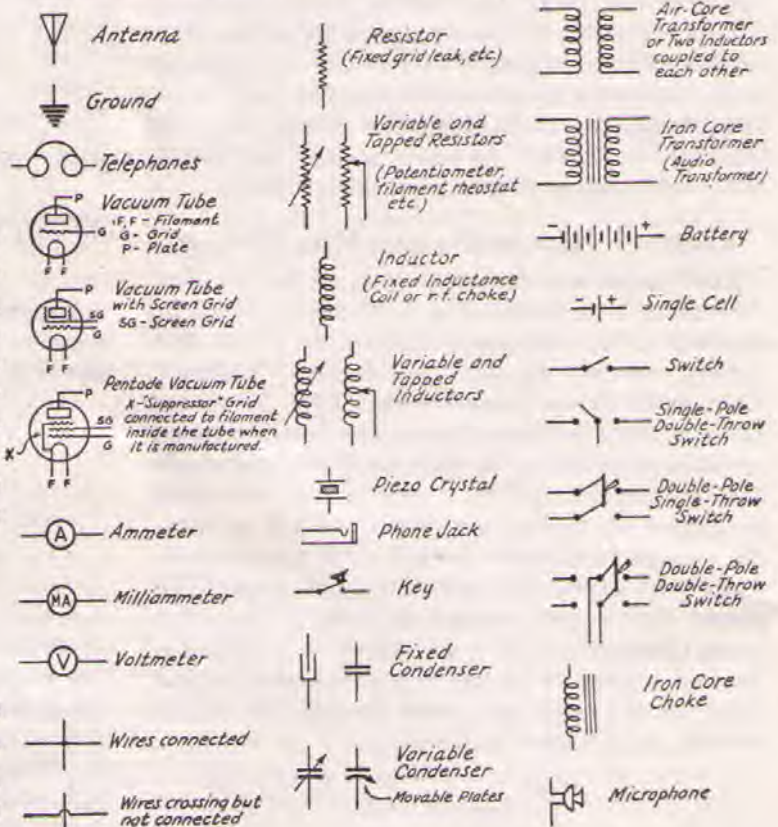 Antenna
Ground
Telephones
P
Vacuum Tube
F, F - Filament
G - Grid
P - Plate
G
F F
P
Vacuum Tube
with Screen Grid
SG - Screen Grid
SG
G
F F
Pentode Vacuum Tube
X-"Suppressor" Grid
connected to filament
inside the tube when
it is manufactured.
P
SG
G
X
F F
A
Ammeter
MA
Milliammeter
V
Voltmeter
Wires connected
Wires crossing but
not connected
Resistor
(Fixed grid leak, etc)
Variable and
Tapped Resistors
(Potentiometer,
filament rheostat
etc.)
Inductor
(Fixed Inductance
Coil or r.f. choke)
Variable and
Tapped
Inductors
Piezo Crystal
Phone Jack
Key
Fixed
Condenser
Variable
Condenser
Movable Plates
Air-Core
Transformer
or Two Inductors
coupled to
each other
Iron Core
Transformer
(Audio
Transformer)
- +
Battery
- +
Single Cell
Switch
Single-Pole
Double-Throw
Switch
Double-Pole
Single-Throw
Switch
Double-Pole
Double-Throw
Switch
Iron Core
Choke
Microphone